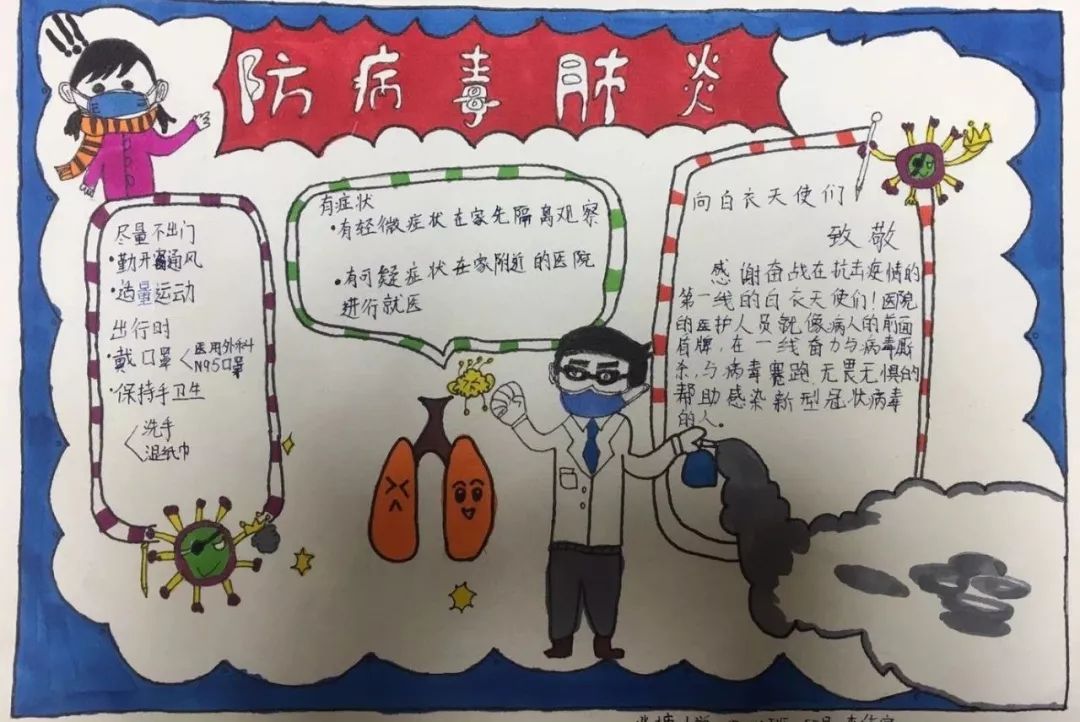 防病毒肺炎
尽量不出门
•勤开窗通风
•适量运动
出行时
•戴口罩<医用外科
N95口罩
•保持手卫生
<洗手
湿纸巾
有症状
•有轻微症状在家先隔离观察
•有可疑症状在家附近的医院
进行就医
向白衣天使们
致敬
感谢奋战在抗击疫情的
第一线的白衣天使们！医院
的医护人员就像病人的前面
盾牌，在一线奋力与病毒厮
杀，与病毒赛跑，无畏无惧的
帮助感染新型冠状病毒
的人。